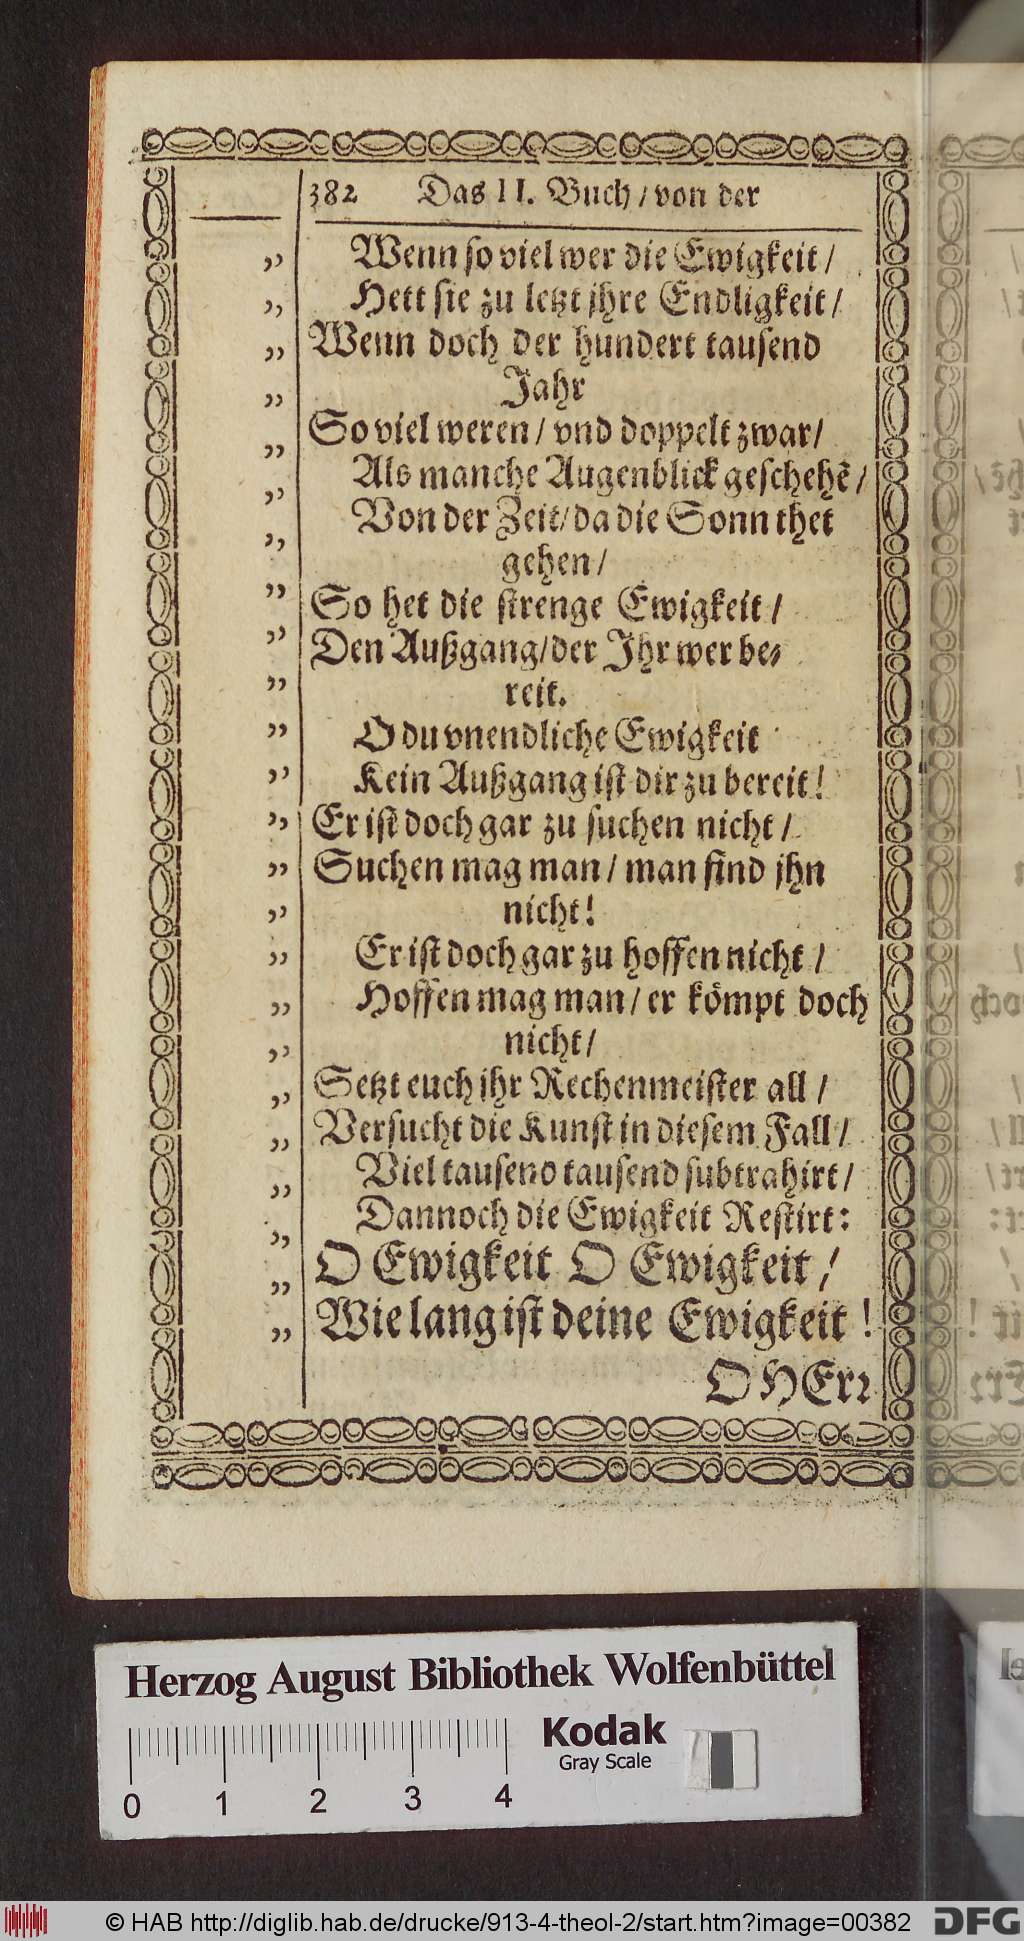 382 Das II. Buch / von der
„ Wenn so viel wer die Ewigkeit /
„ Hett sie zu letzt jhre Endligkeit /
„ Wenn doch der hundert tausend
„ Jahr
„ So viel weren / vnd doppelt zwar /
„ Als manche Augenblick geschehẽ /
„ Von der Zeit / da die Sonn thet
„ gehen /
„ So het die strenge Ewigkeit /
„ Den Außgang / der Jhr wer be⸗
„ reit.
„ O du vnendliche Ewigkeit
„ Kein Außgang ist dir zu bereit!
„ Er ist doch gar zu suchen nicht /
„ Suchen mag man / man find jhn
„ nicht!
„ Er ist doch gar zu hoffen nicht /
„ Hoffen mag man / er kömpt doch
„ nicht /
„ Setzt euch jhr Rechenmeister all /
„ Versucht die Kunst in diesem Fall /
„ Viel tausend tausend subtrahirt /
„ Dannoch die Ewigkeit Restirt:
„ O Ewigkeit O Ewigkeit /
„ Wie lang ist deine Ewigkeit !
O HErꝛ
Herzog August Bibliothek Wolfenbüttel
Kodak
Gray Scale
0 1 2 3 4
© HAB http://diglib.hab.de/drucke/913-4-theol-2/start.htm?image=00382
DFG